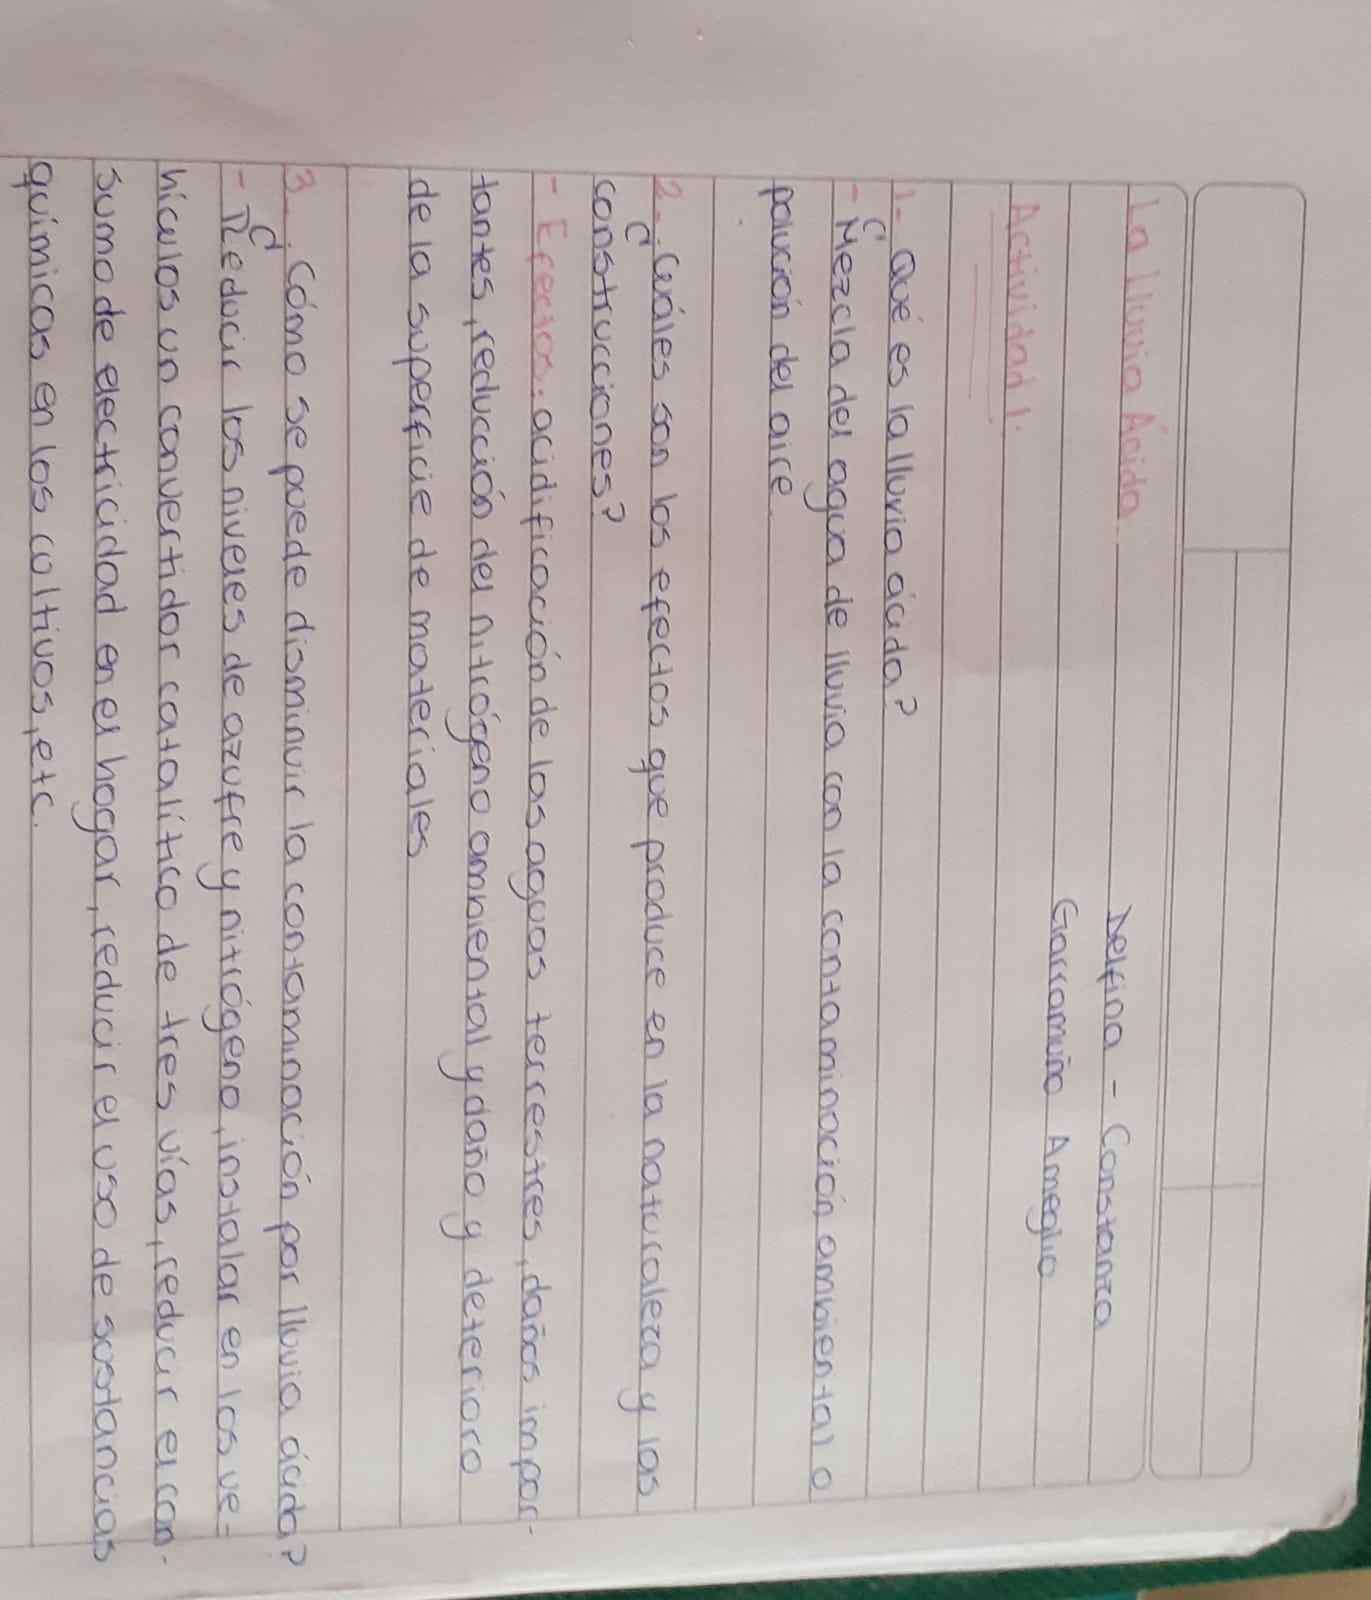 La lluvia Ácida
Delfina - Constanza
Garramuño Ameglio
Actividad 1.
1- ¿Qué es la lluvia ácida?
- Mezcla del agua de lluvia con la contaminación ambiental o
polución del aire.
2. ¿Cuáles son los efectos que produce en la naturaleza y las
construcciones?
- Efectos: acidificación de las aguas terrestres, daños impor-
tantes, reducción del nitrógeno ambiental y daño y deterioro
de la superficie de materiales
3. ¿Cómo se puede disminuir la contaminación por lluvia ácida?
- Reducir los niveles de azufre y nitrógeno, instalar en los ve-
hículos un convertidor catalítico de tres vías, reducir el con-
sumo de electricidad en el hogar, reducir el uso de sustancias
químicas en los cultivos, etc.